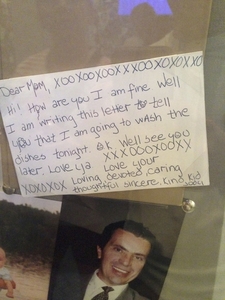 Dear Mom, XOOXOOXOOXXXOOXOXOXXO
Hi! How are you I am fine Well
I am writing this letter to tell
you that I am going to wash the
dishes tonight O.K. Well see you
later. Love ya XXXOOOXOOXX
Love your
XOXOXOX Loving, devoted, caring
thoughtful, sincere, kind kid